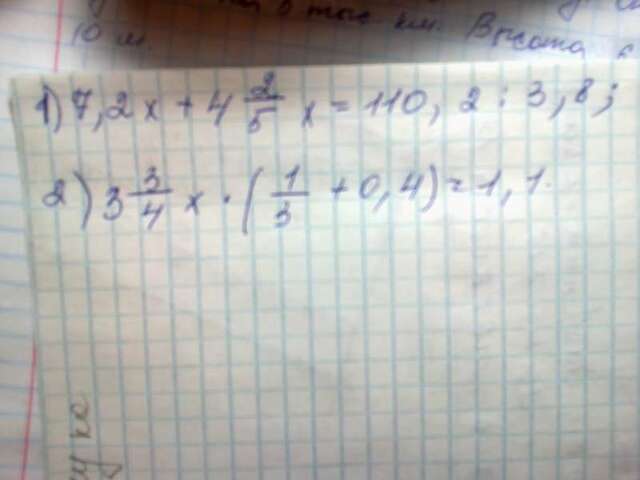 тыс км. Высота
10 м.
1) 7,2x + 4 2/5 x = 110,2 : 3,8;
2) 3 3/4 x · (1/3 + 0,4) = 1,1.